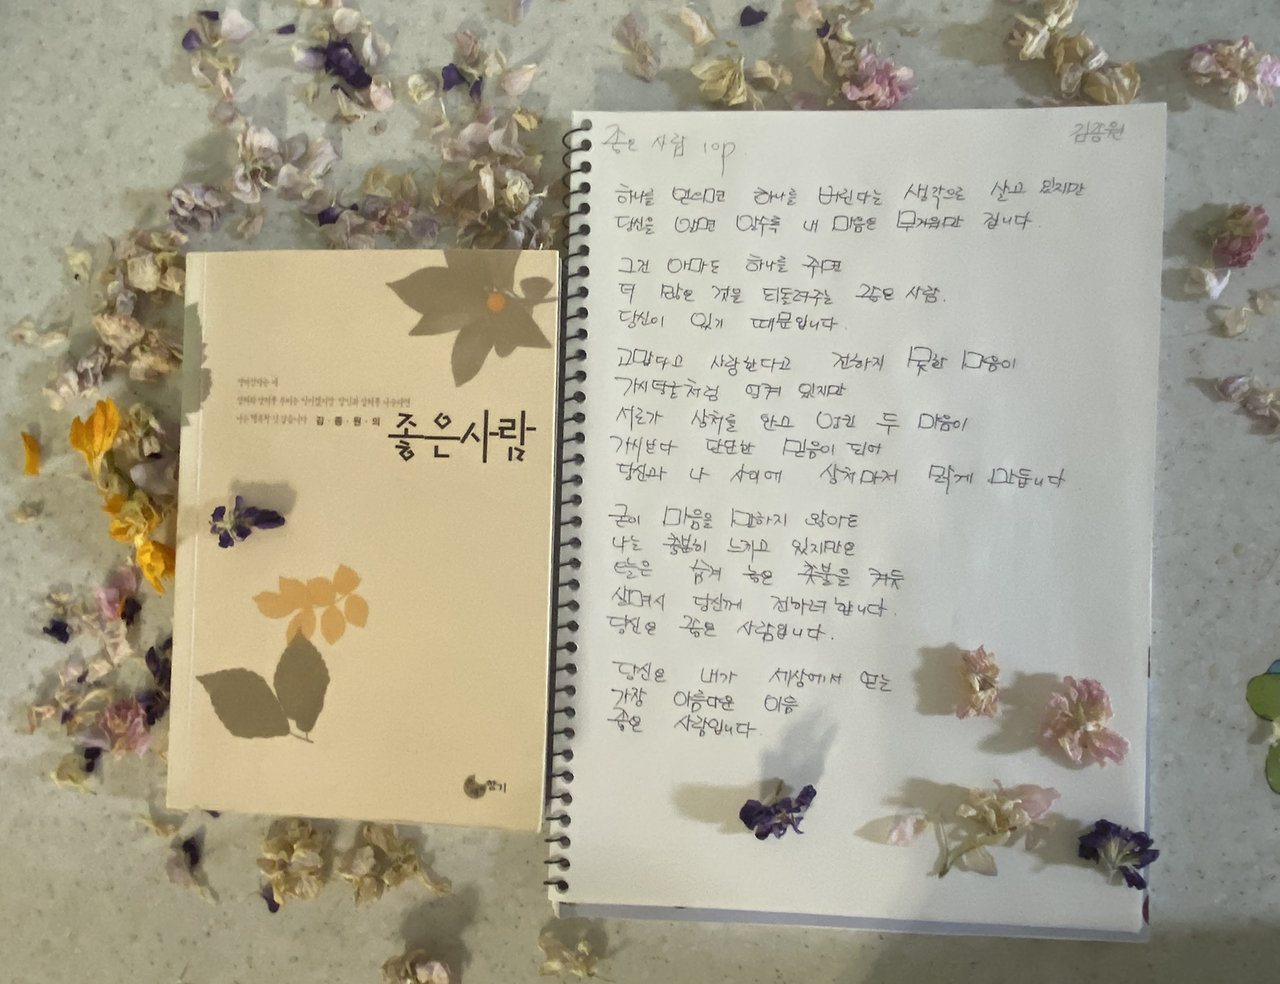 김·종·원·의
좋은사람
좋은 사람 10p
김종원
하나를 얻으면 하나를 버린다는 생각으로 살고 있지만
당신을 알면 알수록 내 마음은 무거워만 집니다.
그건 아마도 하나를 주면
더 많은 것을 되돌려주는 좋은 사람.
당신이 있기 때문입니다.
고맙다고 사랑한다고 전하지 못한 마음이
가시덤불처럼 엉켜 있지만
서로가 상처를 안고 엉킨 두 마음이
가시보다 단단한 믿음이 되어
당신과 나 사이에 상처마저 맑게 만듭니다
굳이 마음을 말하지 않아도
나는 충분히 느끼고 있지만은
오늘은 숨겨 놓은 촛불을 켜듯
살며시 당신께 전하려 합니다.
당신은 좋은 사람입니다.
당신은 내가 세상에서 얻는
가장 아름다운 이름
좋은 사람입니다.